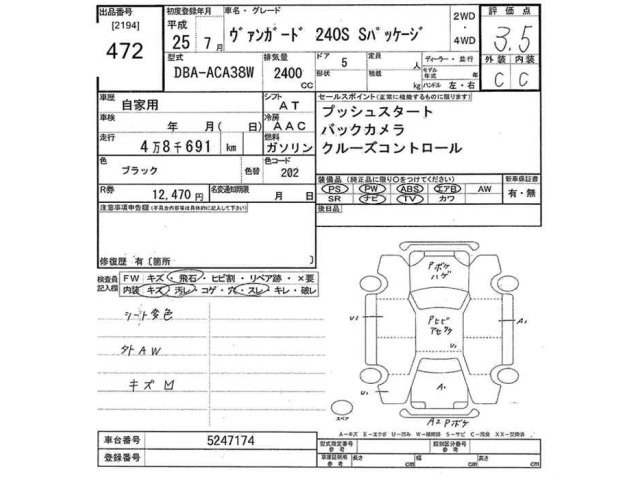 出品番号
[2194]
472
初度登録年月
平成 25年 7月
車名・グレード
ヴァンガード 240S Sパッケージ
2WD
・
4WD
評価点
3.5
外装 内装
C C
型式
DBA-ACA38W
排気量
2400
CC
ドア 5
形状
定員 人
積載 kg
ディーラー・並行
モデル年式 年
ハンドル 左・右
車歴
自家用
シフト
AT
車検
年 月(日)
冷房
AAC
走行
4万8千691 km
燃料
ガソリン
色
ブラック
色替
色コード
202
R券
12,470円
名変通知期限
月 日
セールスポイント(正常に機能するものに限ります)
プッシュスタート
バックカメラ
クルーズコントロール
装備品(純正品に限り○をつけてください)
新車保証書
PS PW ABS エアB AW
有・無
SR ナビ TV カワ
後日品
注意事項申告欄(不具合内容等は具体的に記入して下さい)
修復歴 有〔箇所 〕
検査員記入欄
FW キズ・飛石・ヒビ割・リペア跡・×要
内装 キズ・汚レ・コゲ・穴・スレ・キレ・破レ
シート変色
外AW
キズ凹
Pボケ
ハゲ
U1
Pヒビ
U1
A1
A1
A2 Pボケ
スペア
A−キズ E−エクボ U−凹み W−補修跡 S−サビ C−腐食 XX−交換済
車台番号
5247174
登録番号
型式指定番号
参考
類別区分番号
参考
車庫証明用
参考
長さ cm
幅 cm
高 cm